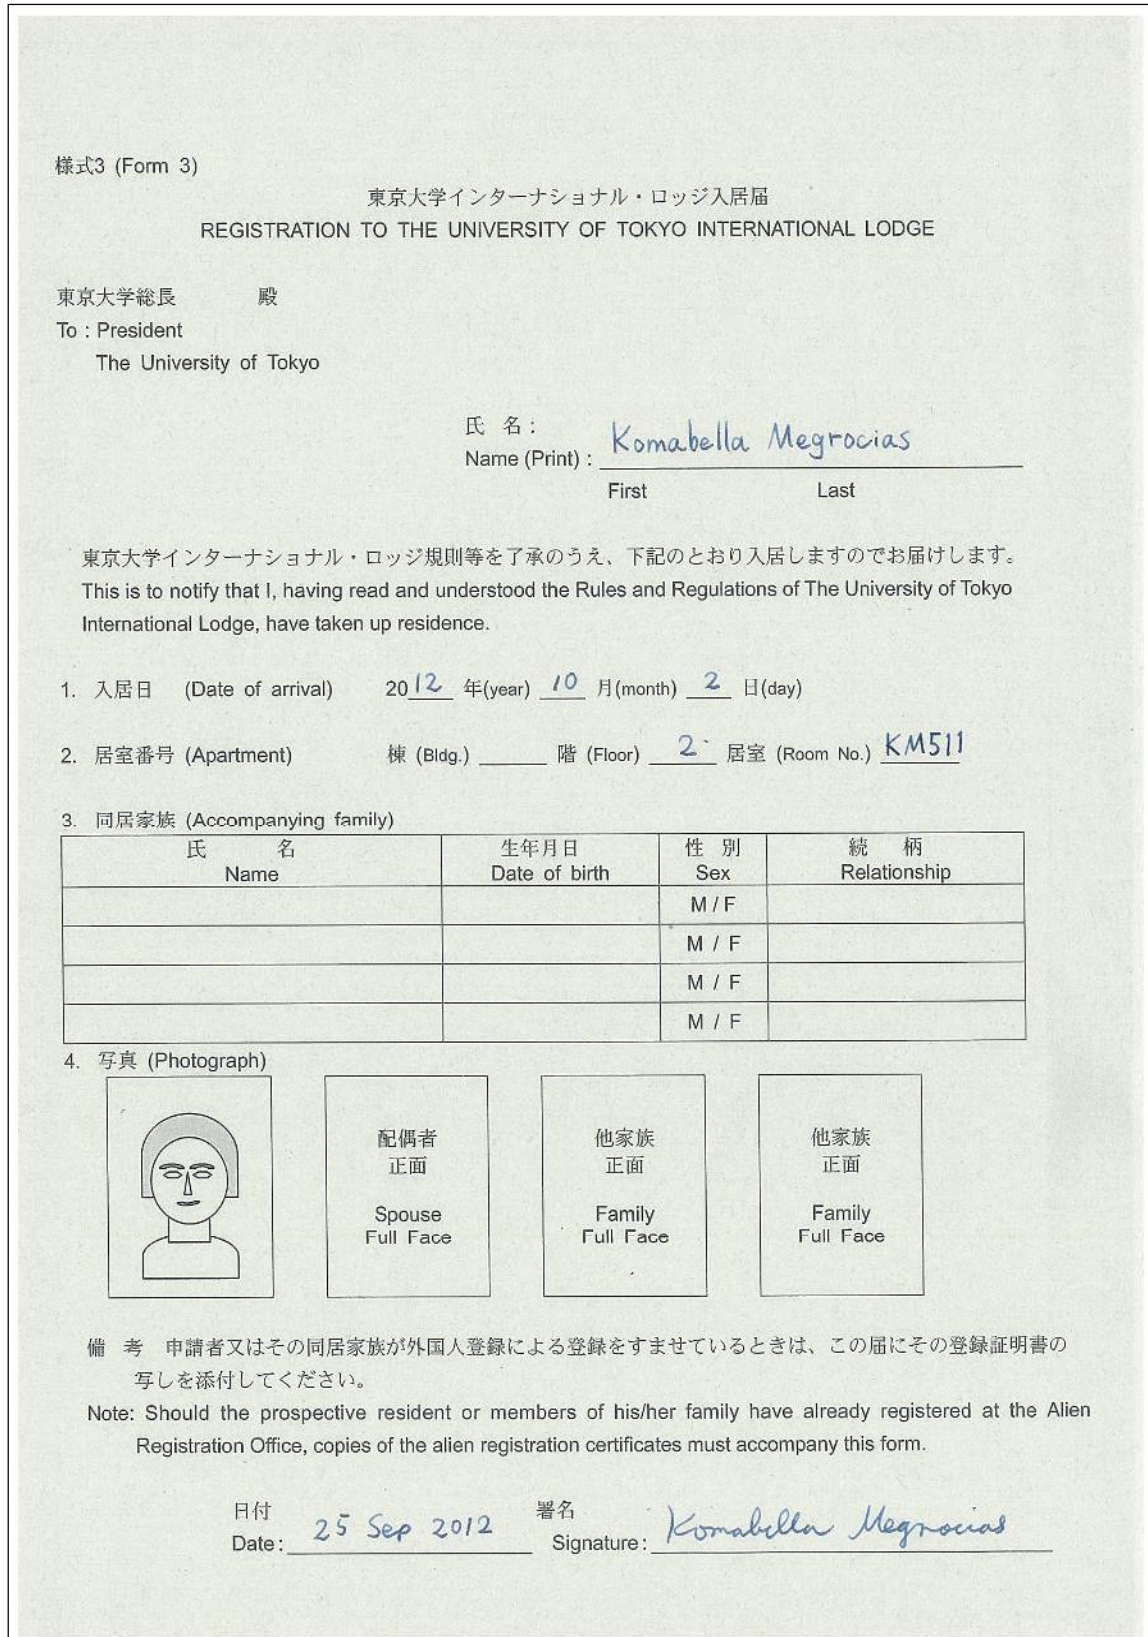 様式3 (Form 3)
東京大学インターナショナル・ロッジ入居届
REGISTRATION TO THE UNIVERSITY OF TOKYO INTERNATIONAL LODGE
東京大学総長 殿
To : President
The University of Tokyo
氏 名 :
Name (Print) : Komabella Megrocias
First Last
東京大学インターナショナル・ロッジ規則等を了承のうえ、下記のとおり入居しますのでお届けします。
This is to notify that I, having read and understood the Rules and Regulations of The University of Tokyo
International Lodge, have taken up residence.
1. 入居日 (Date of arrival) 2012 年(year) 10 月(month) 2 日(day)
2. 居室番号 (Apartment) 棟 (Bldg.) ______ 階 (Floor) 2 居室 (Room No.) KM511
3. 同居家族 (Accompanying family)
氏 名 生年月日 性 別 続 柄
Name Date of birth Sex Relationship
M / F
M / F
M / F
M / F
4. 写真 (Photograph)
配偶者 他家族 他家族
正面 正面 正面
Spouse Family Family
Full Face Full Face Full Face
備 考 申請者又はその同居家族が外国人登録による登録をすませているときは、この届にその登録証明書の
写しを添付してください。
Note: Should the prospective resident or members of his/her family have already registered at the Alien
Registration Office, copies of the alien registration certificates must accompany this form.
日付 署名
Date: 25 Sep 2012 Signature: Komabella Megrocias